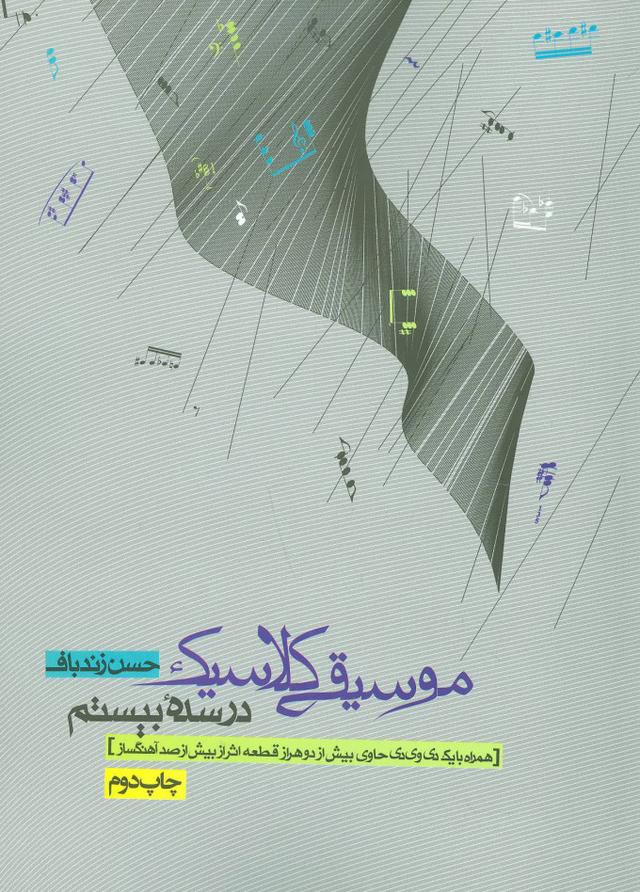 موسیقی کلاسیک
حسن زندباف
در سدهٔ بیستم
[همراه با یک دی وی دی حاوی بیش از دو هزار قطعه اثر از بیش از صد آهنگساز]
چاپ دوم